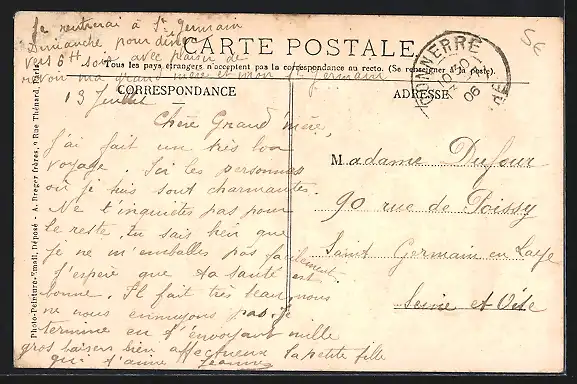 Je rentrerai à St Germain
Dimanche pour dîner
vers 6h soir avec plaisir de
revoir ma grand'mère et mon St Germain
CARTE POSTALE
Tous les pays étrangers n'acceptent pas la correspondance au recto. (Se renseigner à la poste).
CORRESPONDANCE
ADRESSE
TONNERRE
06
5€
13 Juillet
Chère Grand'mère,
J'ai fait un très bon
voyage. Ici les personnes
où je suis sont charmantes.
Ne t'inquiètes pas pour
le reste, tu sais bien que
je ne m'emballes pas facilement.
J'espère que ta santé est
bonne. Il fait très beau, nous
ne nous ennuyons pas. Je
termine en t'envoyant mille
gros baisers bien affectueux ta petite fille
qui t'aime Jeanne
Madame Dufour
90 rue de Poissy
Saint Germain en Laye
Seine et Oise
Photo-Peinture-Émail, Déposé - A. Breger frères, 9 Rue Thénard, Paris